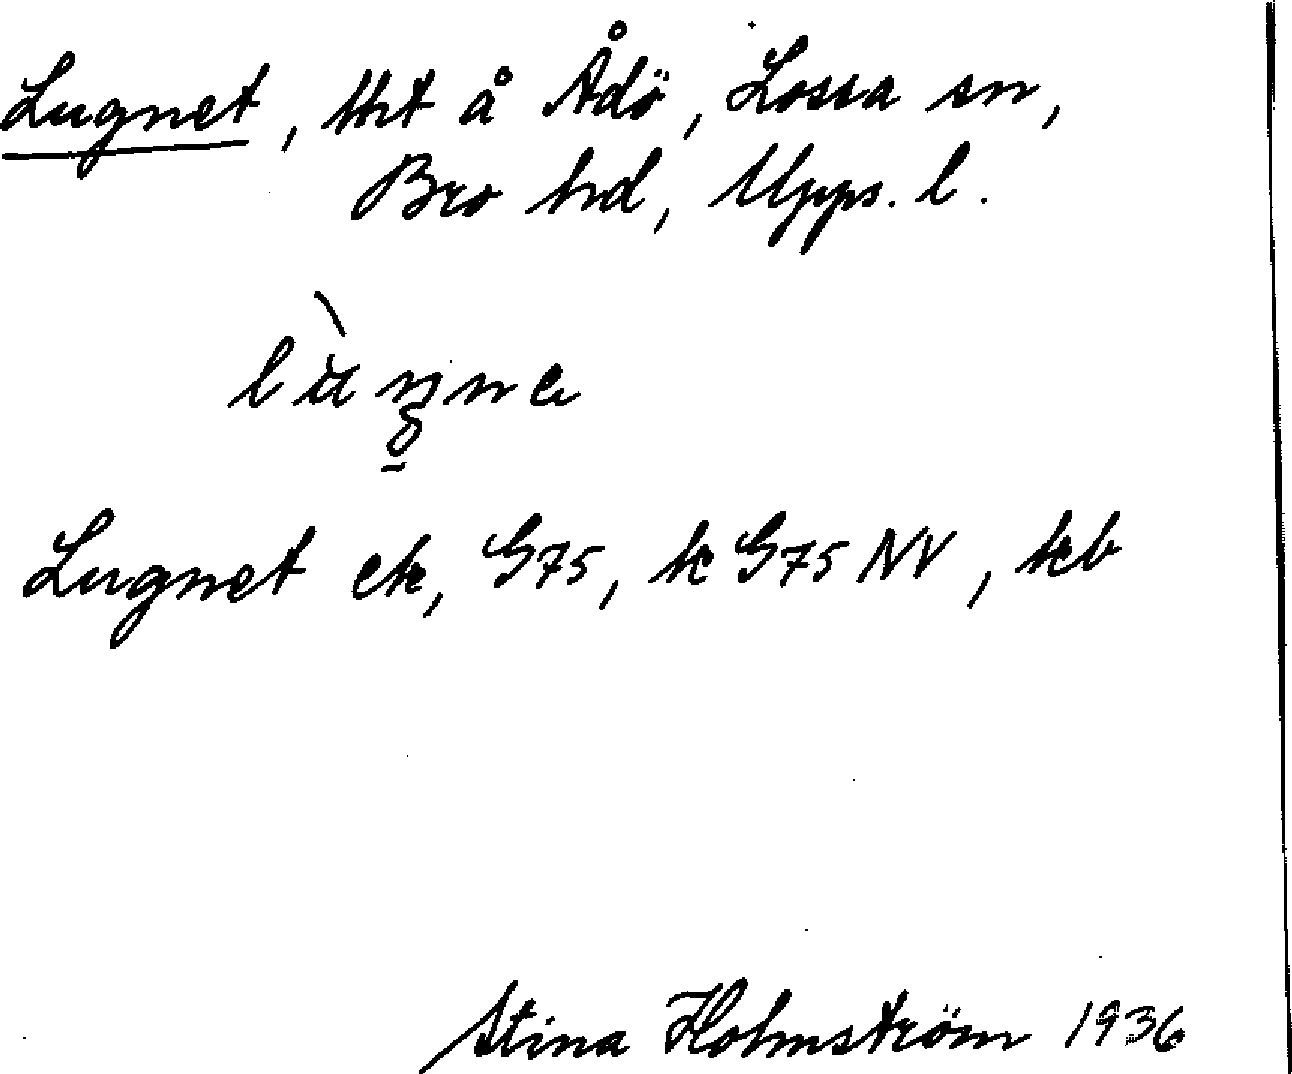 Lugnet, tht å Ådö, Lossa sn,
Bro hd, Upps. l.
Lugnet ek, G75, k G75 NV, kb
Stina Holmström 1936